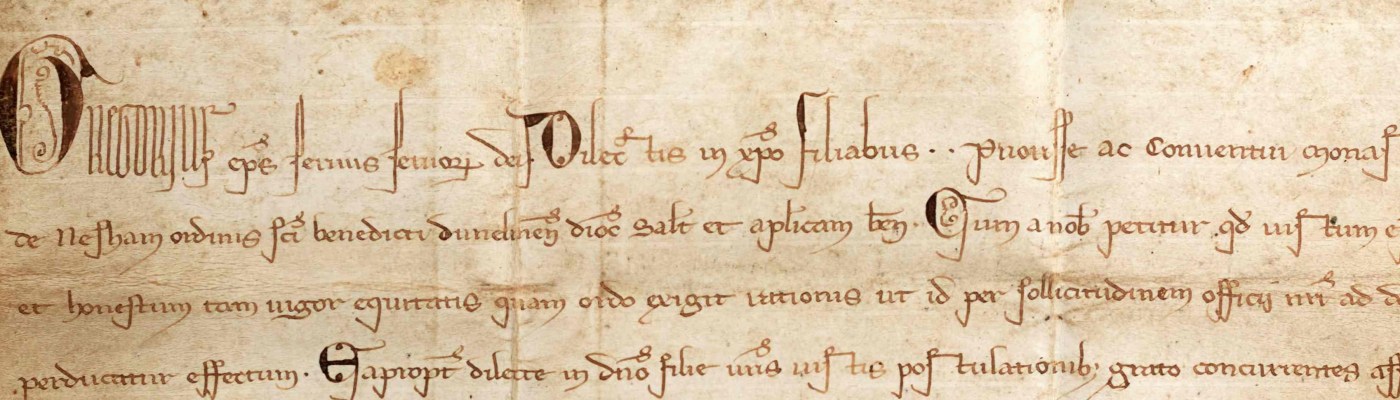 Gregorius ep̄s seruus seruoꝝ dei Dilect̄ tis in xp̄o filiabus . . Priorisse ac Conuentui monas
de Nesham ordinis sc̄i benedicti dunelmen̄ dioc̄ Salt̄ et ap̄licam ben̄. Cum a nob̄ petitur qd̄ iustum e
et honestum tam uigor equitatis quam ordo exigit rationis ut id per sollicitudinem officij nr̄i ad d
perducatur effectum. Eapropt̄ dilecte in dn̄o filie ur̄is iustis postulationib; grato concurrentes aff